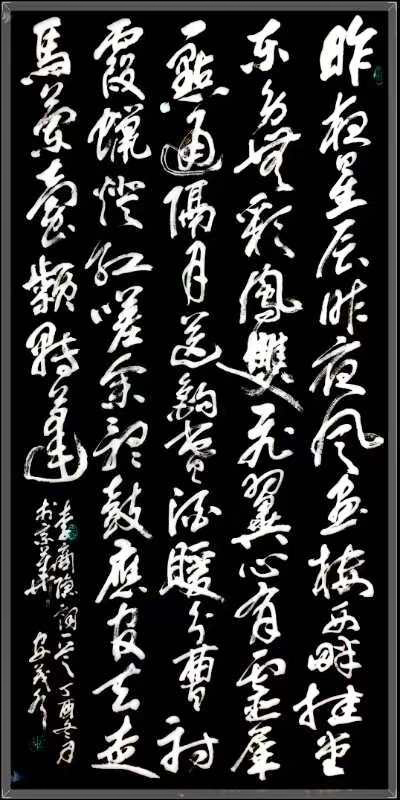 昨夜星辰昨夜風畫樓西畔桂堂
东身無彩鳳雙飛翼心有靈犀
一點通隔月送鈎春酒暖分曹射
覆蠟燈紅嗟余聽鼓應官去走
馬蘭臺類轉蓬
李商隱詞一首丁酉冬月
於京華